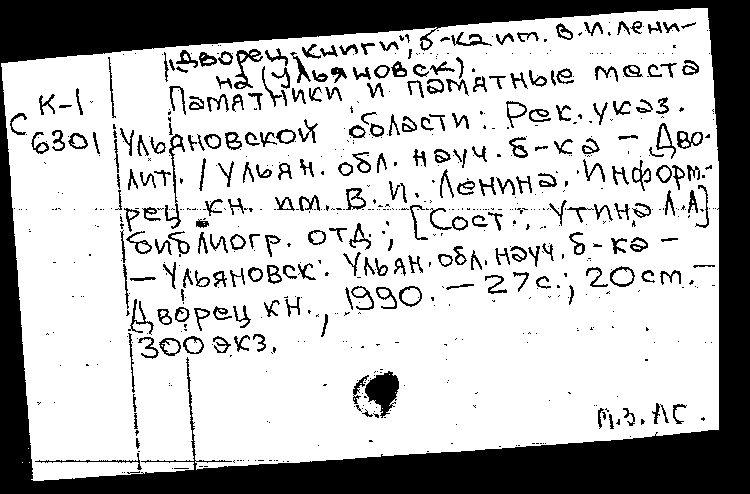 "Дворец книги", б-ка им. В.И. Лени-
на (Ульяновск).
К-1
С 6301
Памятники и памятные места
Ульяновской области: Рек. указ.
лит. / Ульян. обл. науч. б-ка — Дво-
рец кн. им. В. И. Ленина, Информ.-
библиогр. отд.; [Сост.: Утина Л.А.]
— Ульяновск: Ульян. обл. науч. б-ка —
Дворец кн., 1990. — 27 с.; 20 см. —
300 экз.
М.З. ЛС.